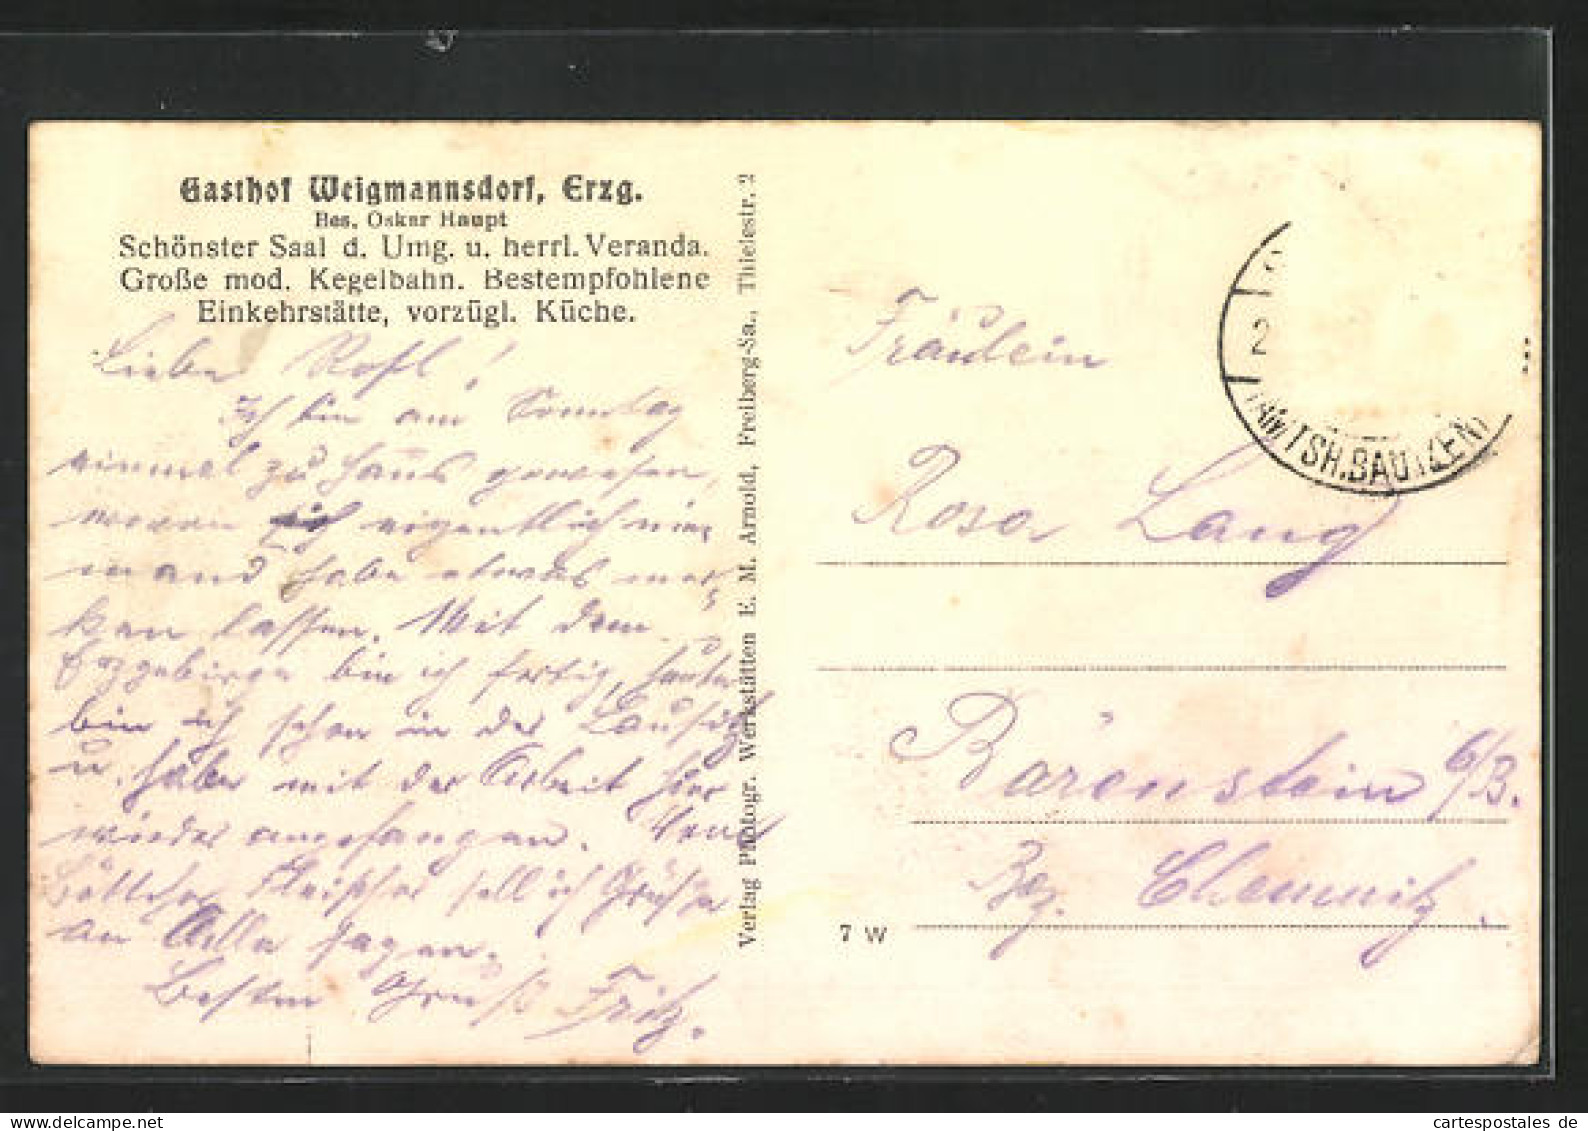 Gasthof Weigmannsdorf, Erzg.
Bes. Oskar Haupt
Schönster Saal d. Umg. u. herrl. Veranda.
Große mod. Kegelbahn. Bestempfohlene
Einkehrstätte, vorzügl. Küche.
Liebe Rosl!
Ich bin am Sonntag
einmal zu Haus gewesen,
wovon ich eigentlich nie-
mand habe etwas mer-
ken lassen. Mit dem
Erzgebirge bin ich fertig, heute
bin ich schon in der Lausitz
u. habe mit der Arbeit hier
wieder angefangen. Von
Fleischer soll ich Grüße
an Alle sagen.
Besten Gruß Fritz.
Verlag Photogr. Werkstätten E. M. Arnold, Freiberg-Sa., Thielestr. 2
2
(AMTSH.BAUTZEN)
Fräulein
Rosa Lang
Bärenstein b/B.
Bez. Chemnitz.
7 W
cartespostales de